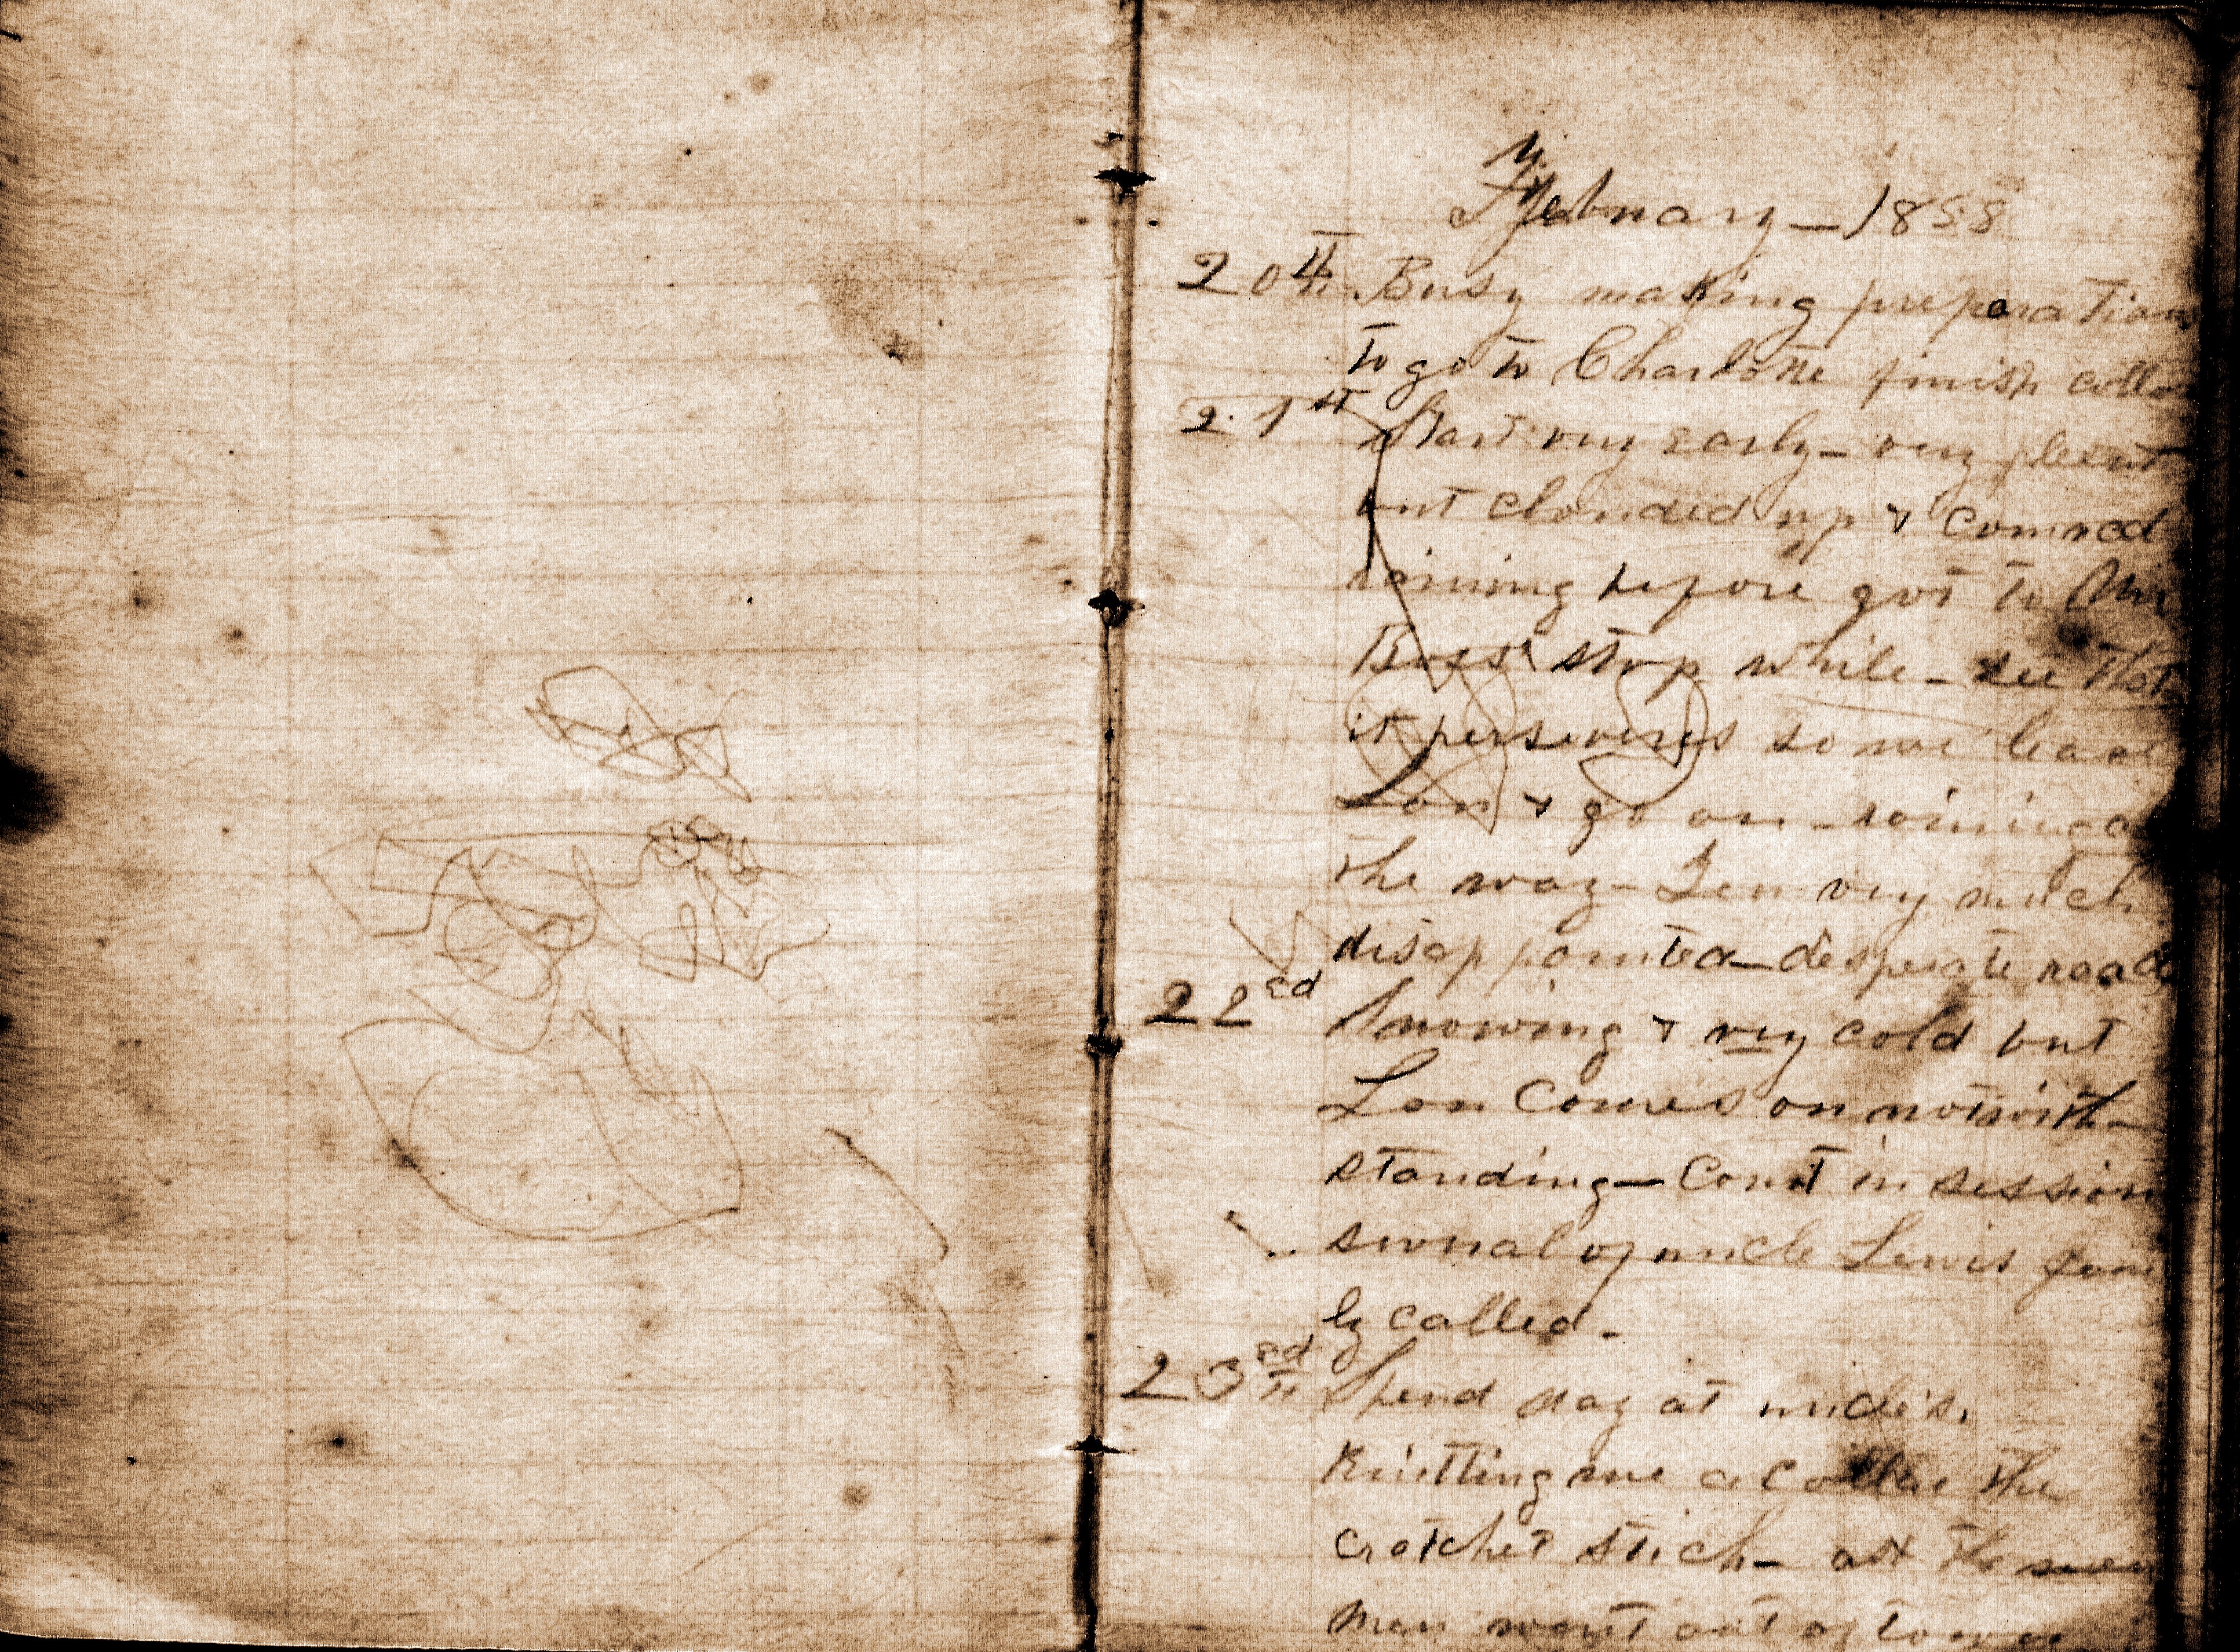 February — 1858
20th Busy making preparations
to go to Charlotte finish colla
21st Start very early — very pleent
but clouded up & comnced
raining before got to Mr
Boss' stop while — see that
it perseveres so we leave
Lon & go on — raining a
the way — Lon very much
disappointed — desperate roads
22cd Snowing & very cold but
Lon Comes on notwith-
standing — Court in session
several of uncle Lewis fam
ly called —
23rd Spend day at uncle's.
Knitting me a collar the
cratchet stich — all the men
Men went out of town